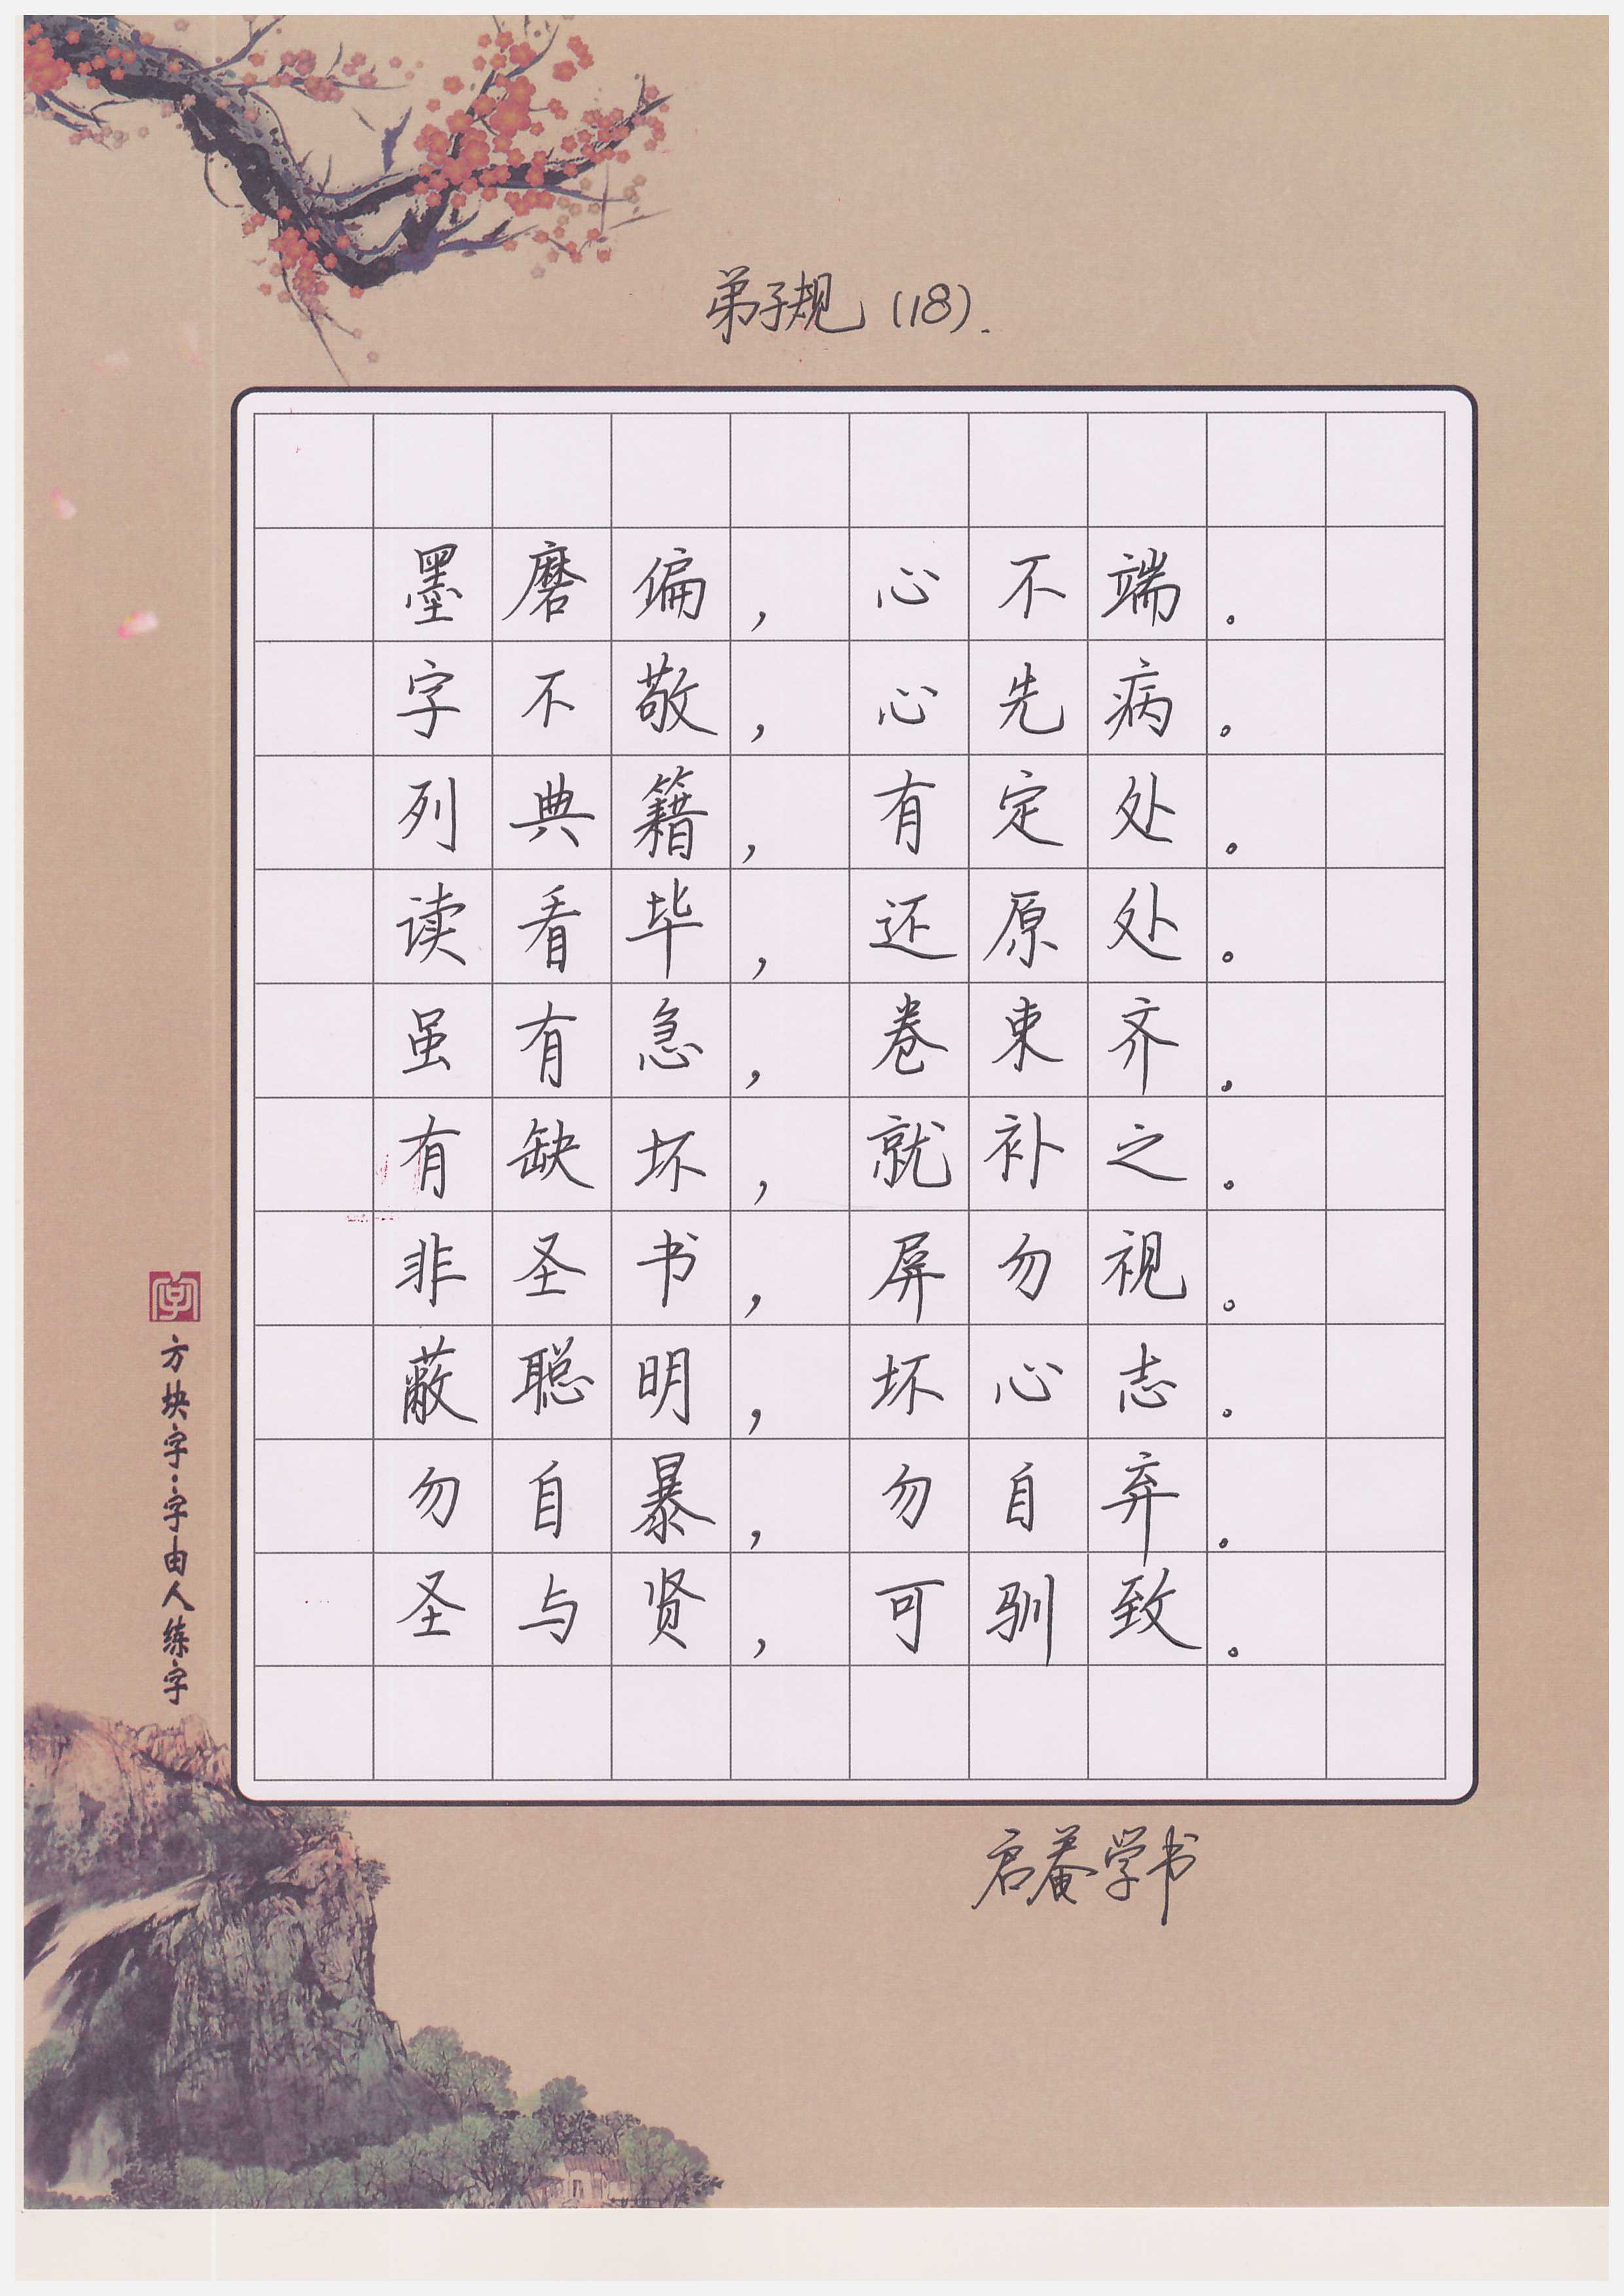 弟子规（18）.
墨磨偏，心不端。
字不敬，心先病。
列典籍，有定处。
读看毕，还原处。
虽有急，卷束齐。
有缺坏，就补之。
非圣书，屏勿视。
蔽聪明，坏心志。
勿自暴，勿自弃。
圣与贤，可驯致。
字
方块字·字由人练字
启菴学书